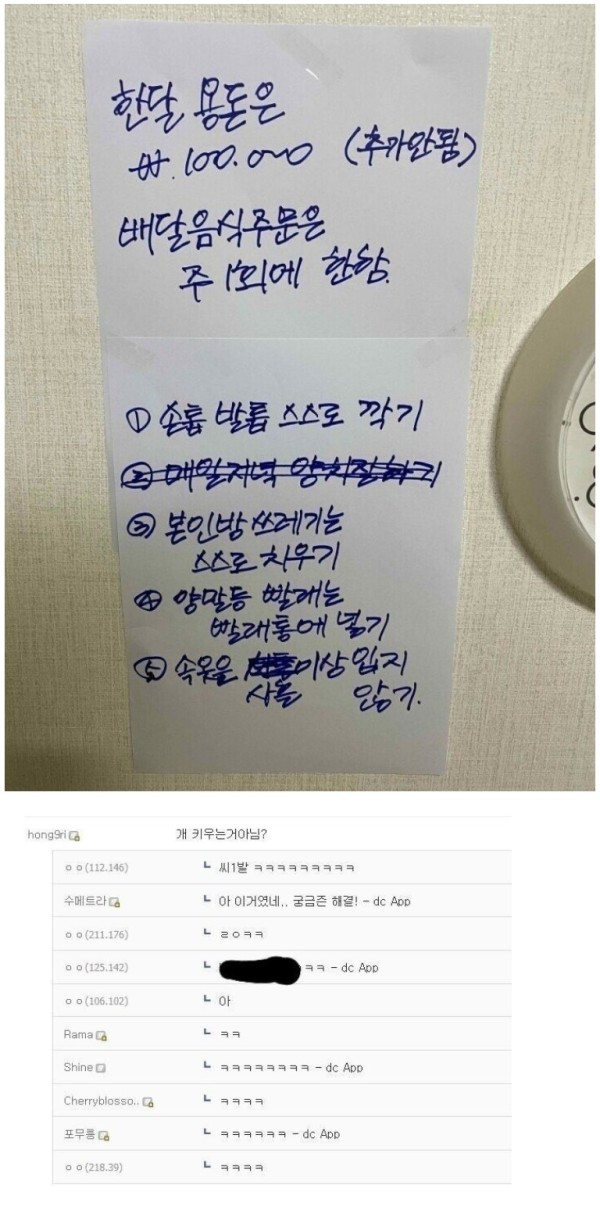 한달 용돈은
₩.100.000 (추가안됨)
배달음식주문은
주 1회에 한함.
① 손톱 발톱 스스로 깍기
② 매일저녁 양치질하기
③ 본인방 쓰레기는
스스로 치우기
④ 양말등 빨래는
빨래통에 넣기
⑤ 속옷을 이상 입지
사흘 않기.
hong9ri 개 키우는거아님?
ㅇㅇ(112.146) ┗ 씨1발 ㅋㅋㅋㅋㅋㅋㅋㅋㅋ
수메트라 ┗ 아 이거였네.. 궁금즌 해결! - dc App
ㅇㅇ(211.176) ┗ ㄹㅇㅋㅋ
ㅇㅇ(125.142) ┗ ㅋㅋ - dc App
ㅇㅇ(106.102) ┗ 아
Rama ┗ ㅋㅋ
Shine ┗ ㅋㅋㅋㅋㅋㅋㅋㅋ - dc App
Cherryblosso.. ┗ ㅋㅋㅋㅋ
포무룽 ┗ ㅋㅋㅋㅋㅋㅋ - dc App
ㅇㅇ(218.39) ┗ ㅋㅋㅋㅋ